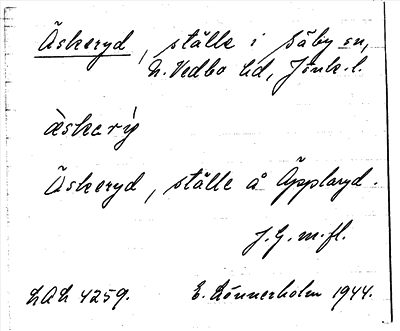 Äskeryd, ställe i Säby sn,
N. Vedbo hd, Jönk. l.
àskerý
Äskeryd, ställe å Äpplaryd.
J.G. m.fl.
LAL 4259. E. Lönnerholm 1944.